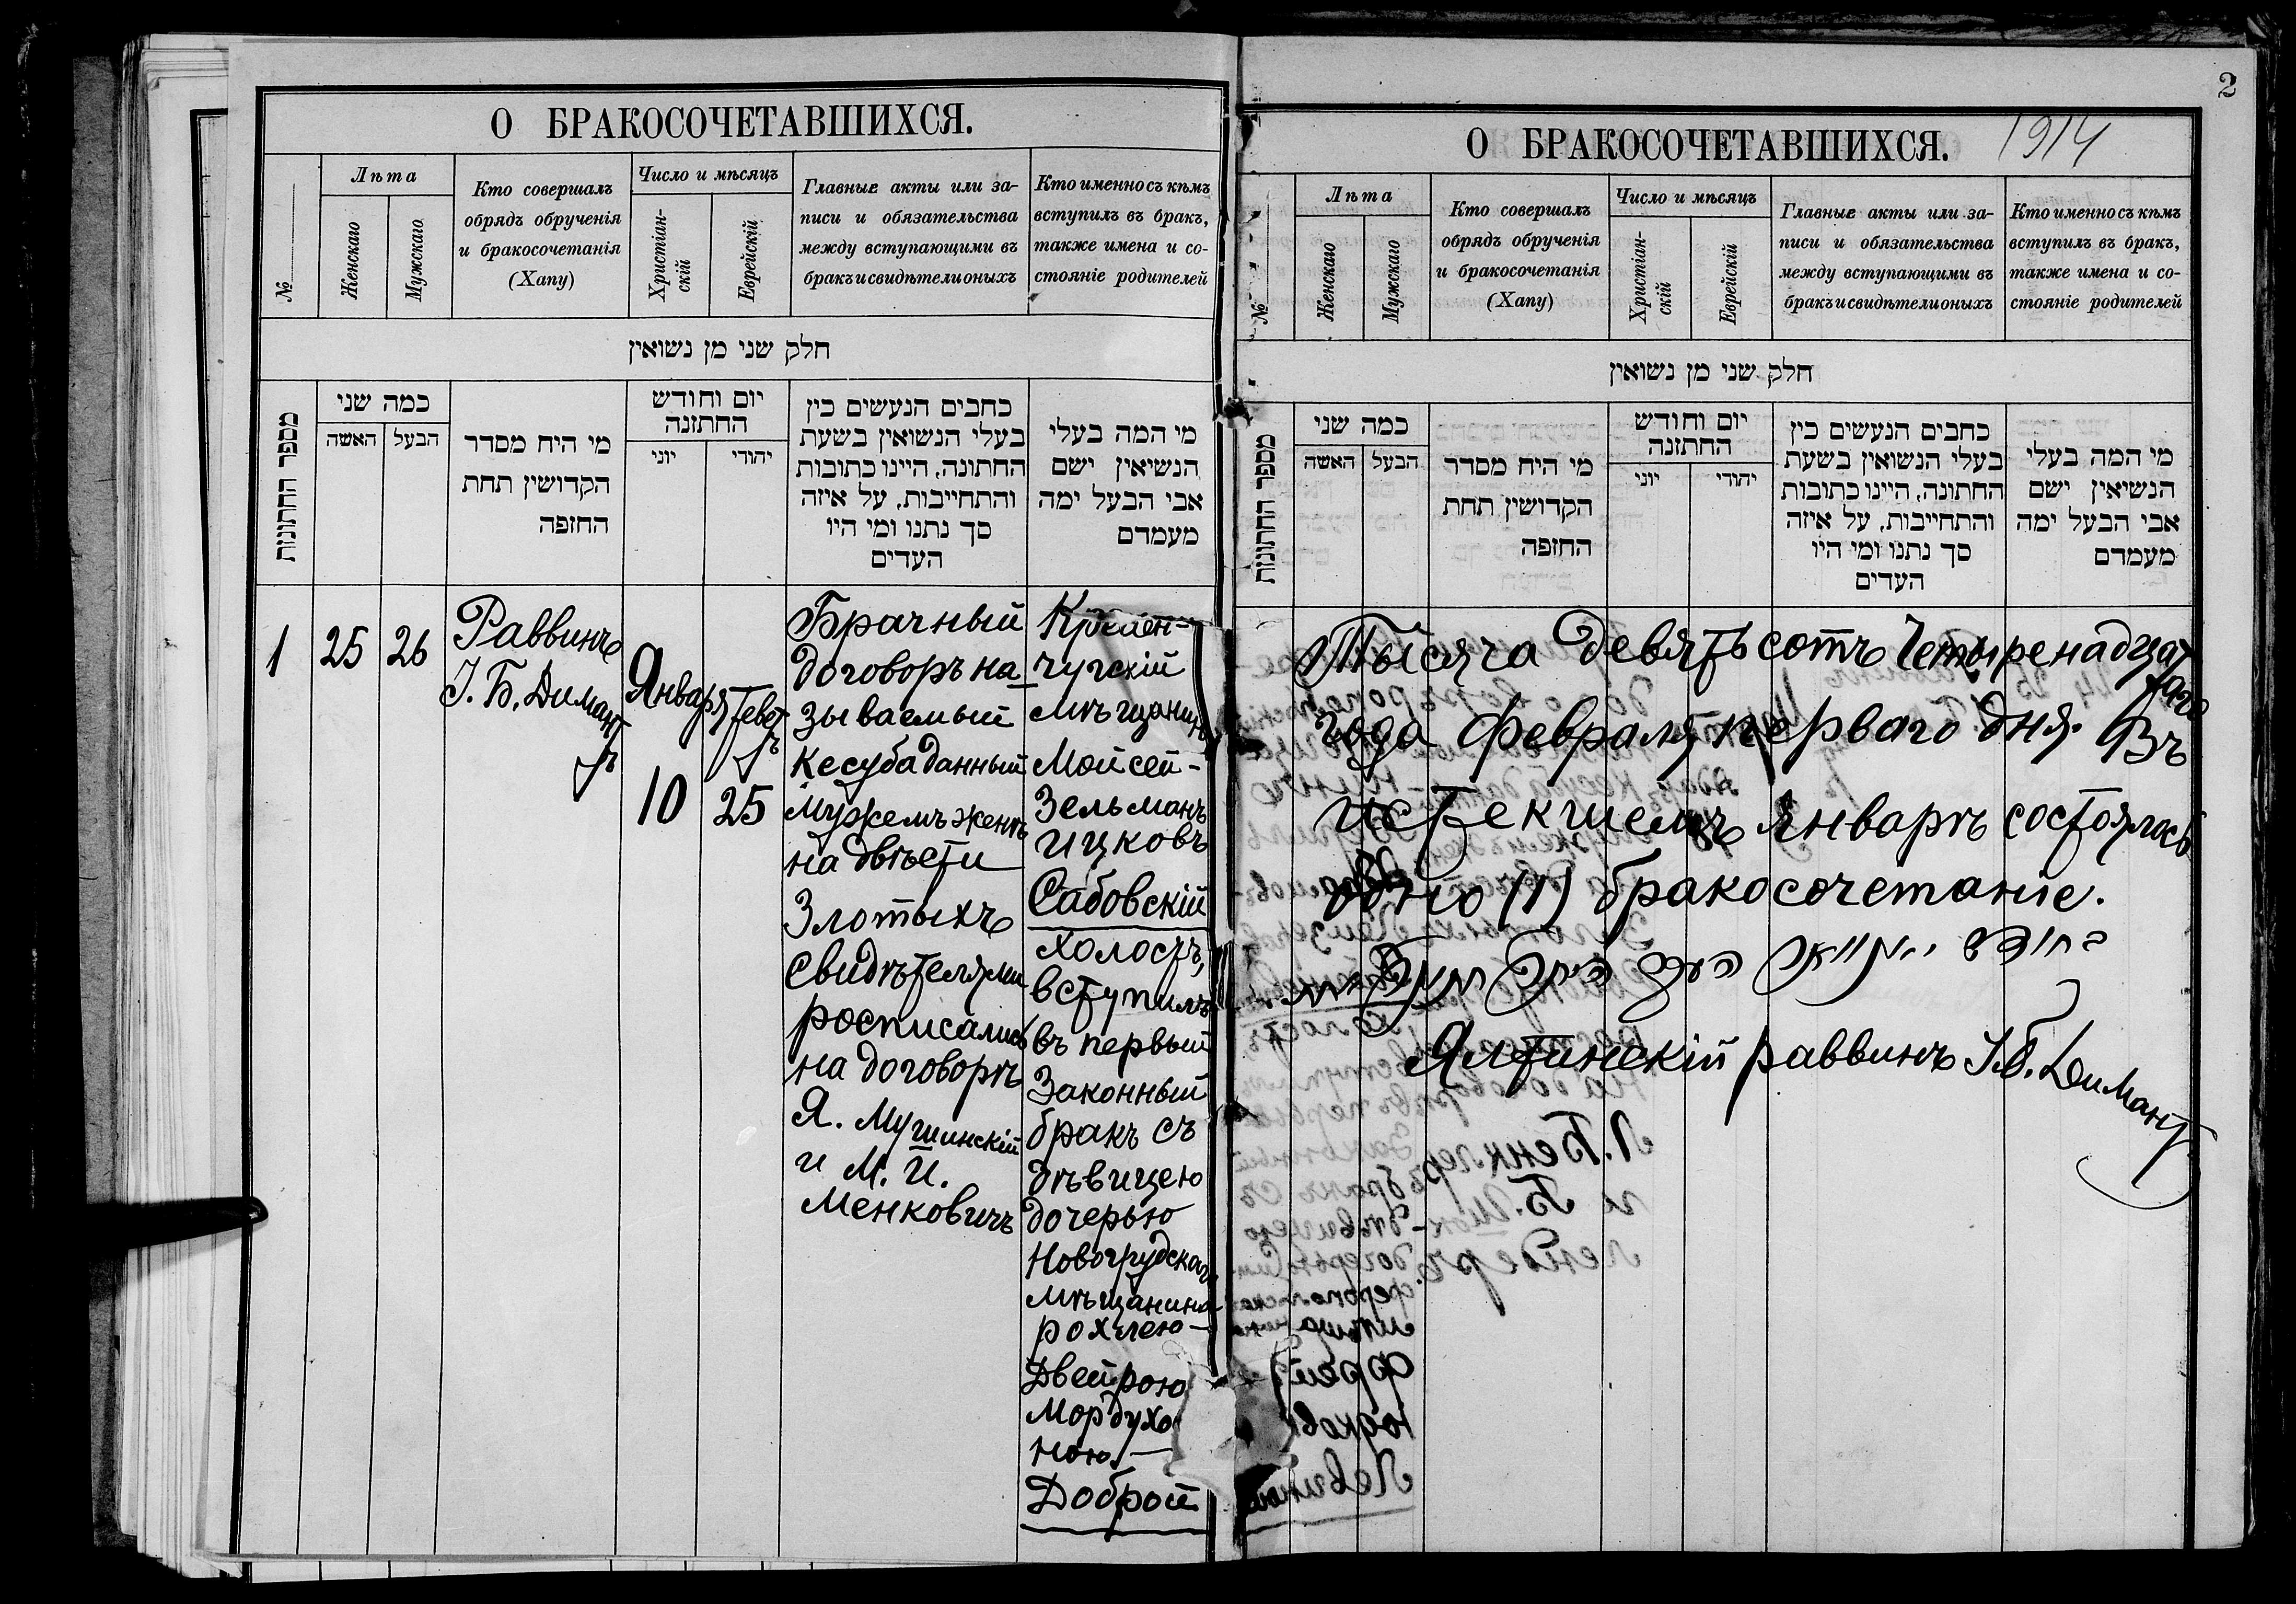 О БРАКОСОЧЕТАВШИХСЯ.
№
Лѣта
Женскаго
Мужскаго
Кто совершалъ
обрядъ обрученія
и бракосочетанія
(Хапу)
Число и мѣсяцъ
Христіан-
скій
Еврейскій
Главные акты или за-
писи и обязательства
между вступающими въ
бракъ и свидѣтели оныхъ
Кто именно съ кѣмъ
вступилъ въ бракъ,
также имена и со-
стояніе родителей
חלק שני מן נשואין
מספר החתונות
כמה שני
האשה
הבעל
מי היח מסדר
הקדושין תחת
החופה
יום וחודש
החתונה
יוני
יהודי
כחבים הנעשים כין
בעלי הנשואין בשעת
החתונה, היינו כתובות
והתחייבות, על איזה
סך נתנו ומי היו
העדים
מי המה בעלי
הנשיאין ישם
אבי הבעל ימה
מעמדם
1
25
26
Раввинъ
І. Б. Димант
ъ
Января
10
Тевет
ъ
25
Брачный
договоръ на
зываемый
кесуба данный
мужемъ женѣ
на двѣсти
Злотыхъ
свидѣтелями
росписались
на договорѣ
Я. Мушинскій
и М. И.
Менковичъ
Кремен-
чугскій
мѣщанинъ
Мойсей-
Зельманъ
Ицковъ
Сабовскій
холостъ,
вступилъ
въ первый
Законный
бракъ съ
дѣвицею
дочерью
Новогрудскаго
мѣщанина
рохлею-
Двейрою
Мордухо
ною-
Доброй
2
О БРАКОСОЧЕТАВШИХСЯ.
1914
№
Лѣта
Женскаго
Мужскаго
Кто совершалъ
обрядъ обрученія
и бракосочетанія
(Хапу)
Число и мѣсяцъ
Христіан-
скій
Еврейскій
Главные акты или за-
писи и обязательства
между вступающими въ
бракъ и свидѣтели оныхъ
Кто именно съ кѣмъ
вступилъ въ бракъ,
также имена и со-
стояніе родителей
חלק שני מן נשואין
מספר החתונות
כמה שני
האשה
הבעל
מי היח מסדר
הקדושין תחת
החופה
יום וחודש
החתונה
יוני
יהודי
כחבים הנעשים כין
בעלי הנשואין בשעת
החתונה, היינו כתובות
והתחייבות, על איזה
סך נתנו ומי היו
העדים
מי המה בעלי
הנשיאין ישם
אבי הבעל ימה
מעמדם
Тысяча девятьсотъ Четыренадцат
таго
года февраля перваго дня. Въ
истекшемъ Январѣ состоялось
одно (1) бракосочетаніе.
Ялтинскій раввинъ І.Б. Димант